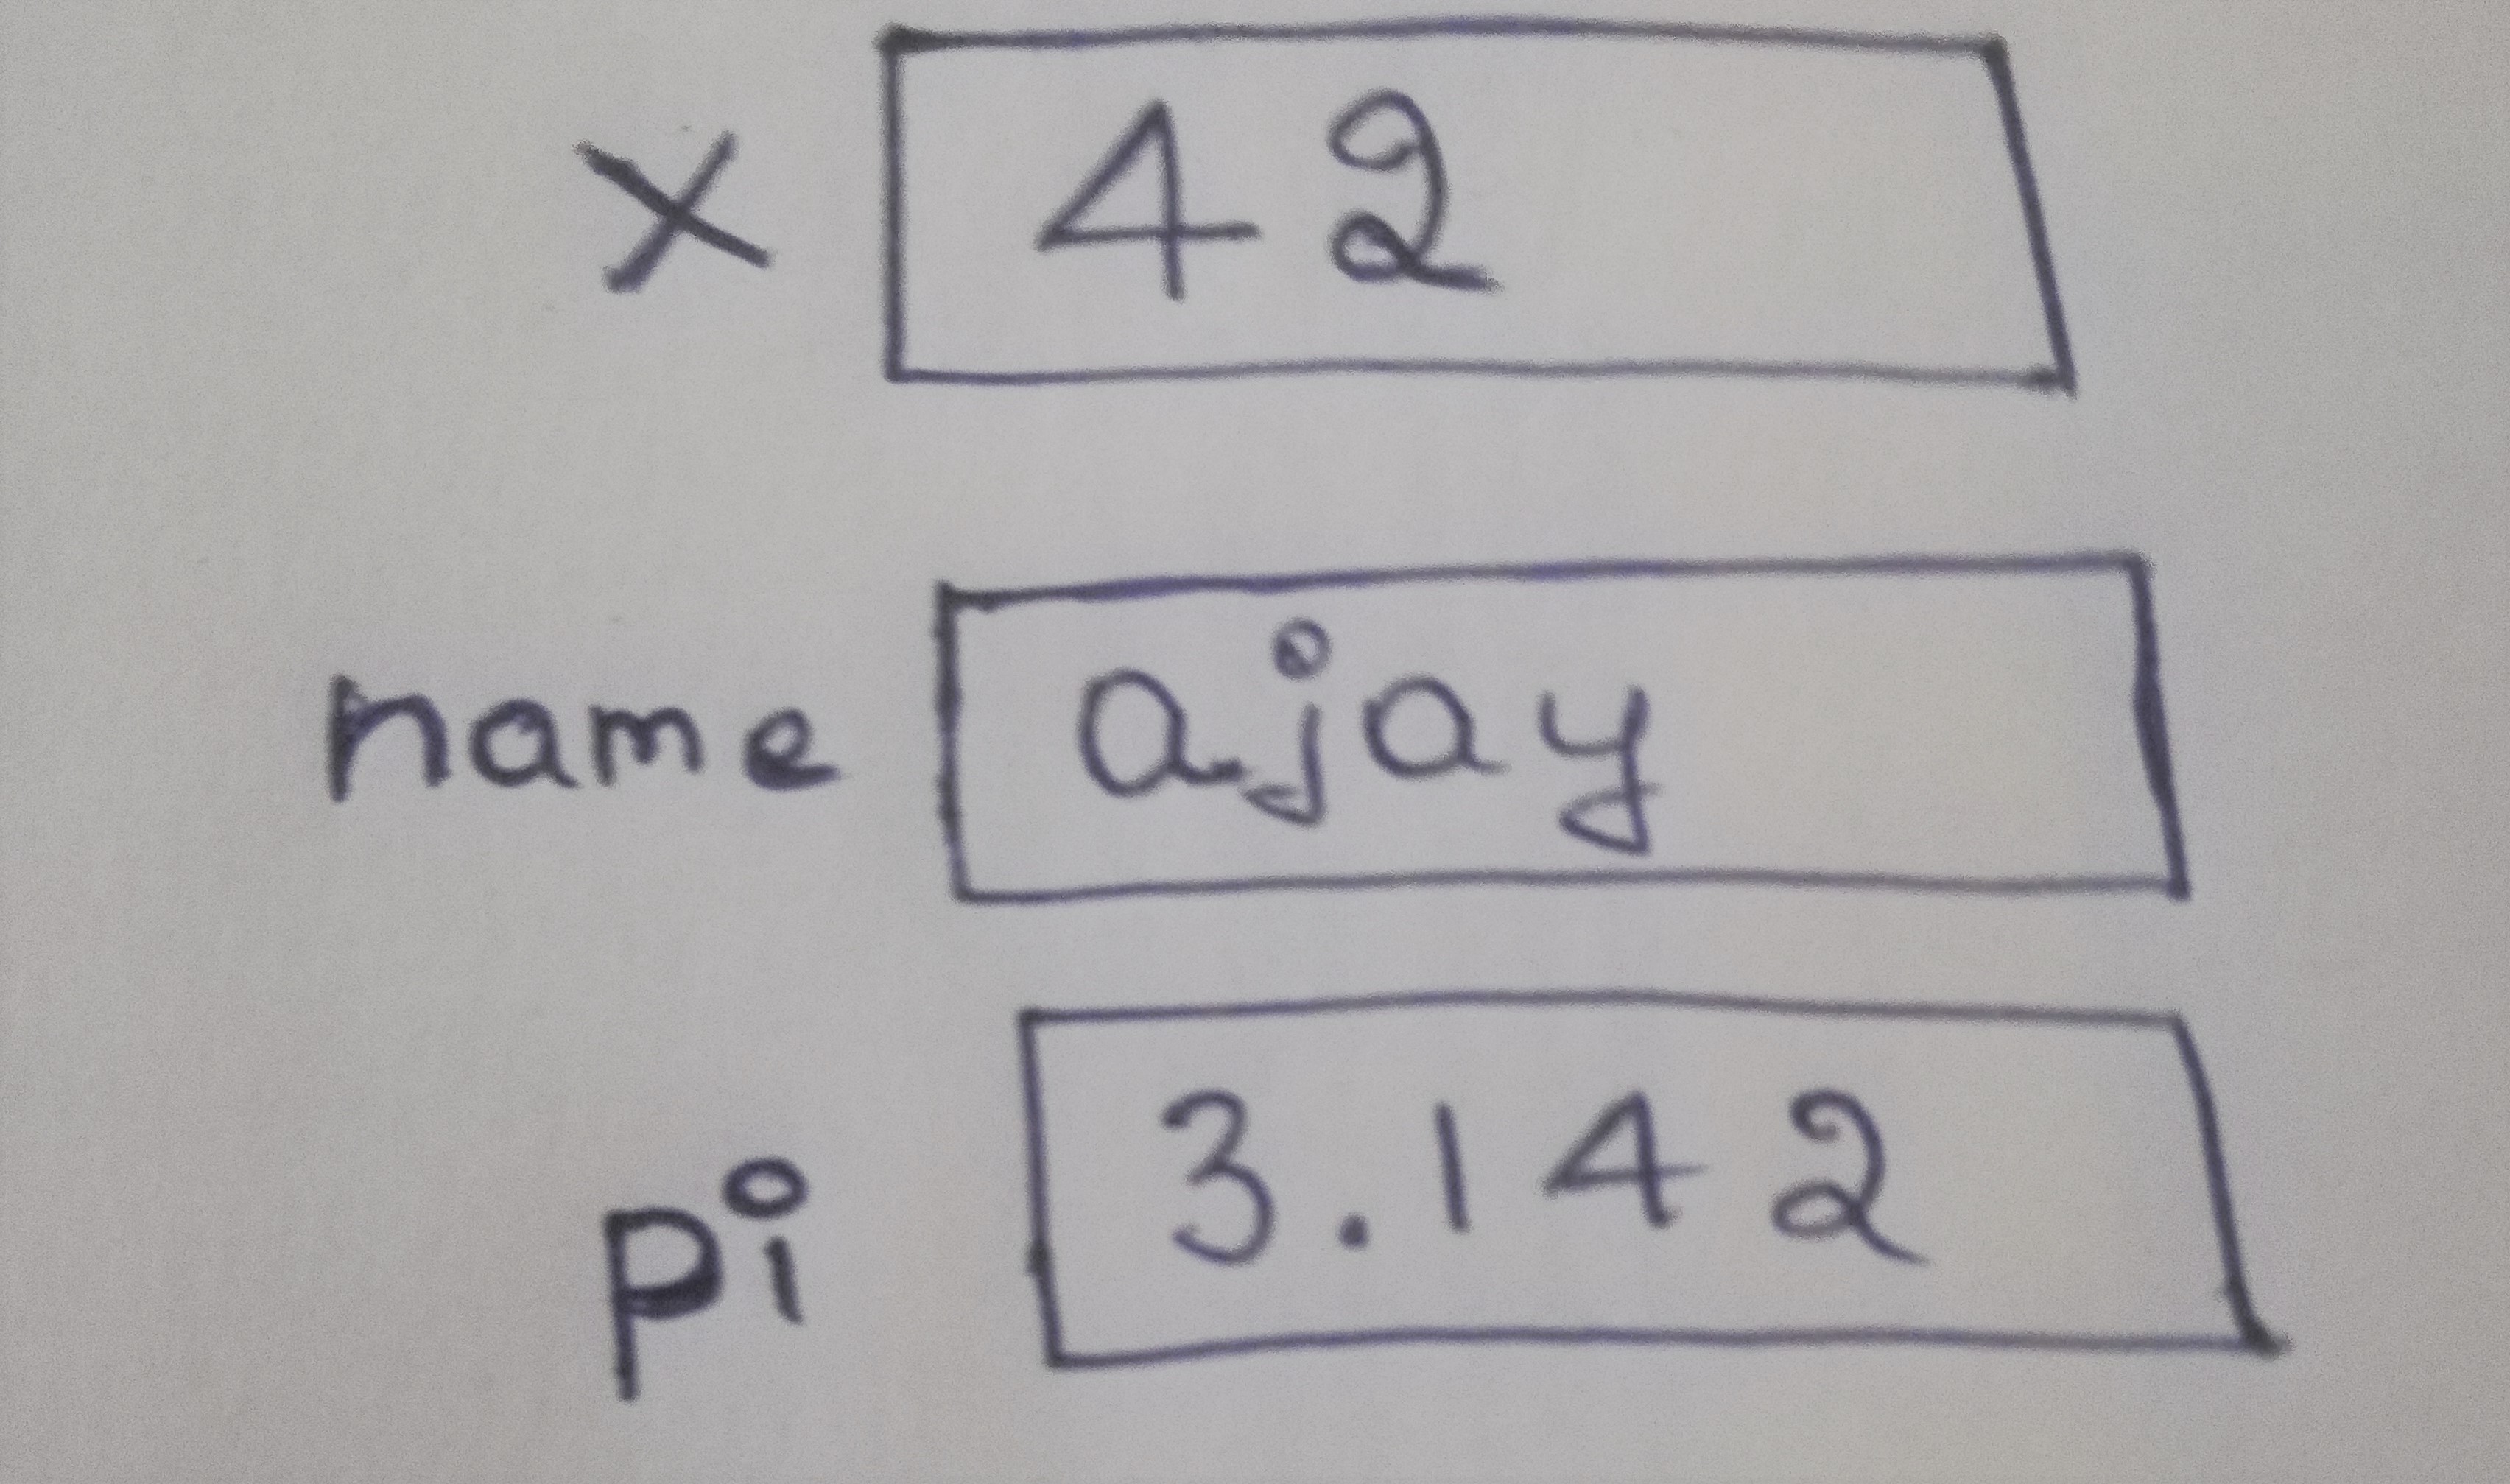 x 42
name ajay
pi 3.142